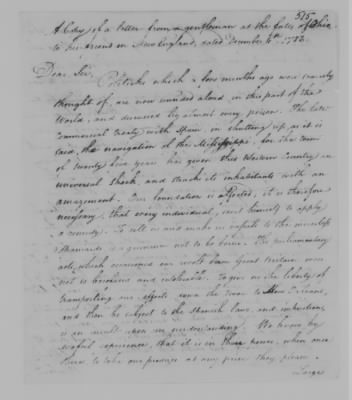 515
A Copy of a letter from a gentleman at the falls of Ohio
to his friend in New England, dated December 4th 178
Dear Sir,
Politicks which a few months ago were scarcely
thought of, are now sounded aloud, in this part of the
World, and discussed by almost every person. The late
commercial treaty with Spain, in shutting up, as it is
said, the navigation of the Mississippi, for the term
of twenty five years has given this Western Country an
universal shock and struck its inhabitants with an
amazement. Our foundation is affected, it is therefore
necessary that every individual, exert himself to apply
a remedy. To sell us and make us vassals to the merciless
Spaniards is a grievance not to be borne. The parliamentary
acts, which occasioned our revolt from Great Britain were
not so barefaced and intolerable. To give us the liberty of
transporting our effects down the river to New Orleans,
and then be subject to the Spanish laws and impositions,
is an insult upon our understanding. We know by
woeful experience, that it is in their power, when once
there, to take our produce at any price they please.
Large